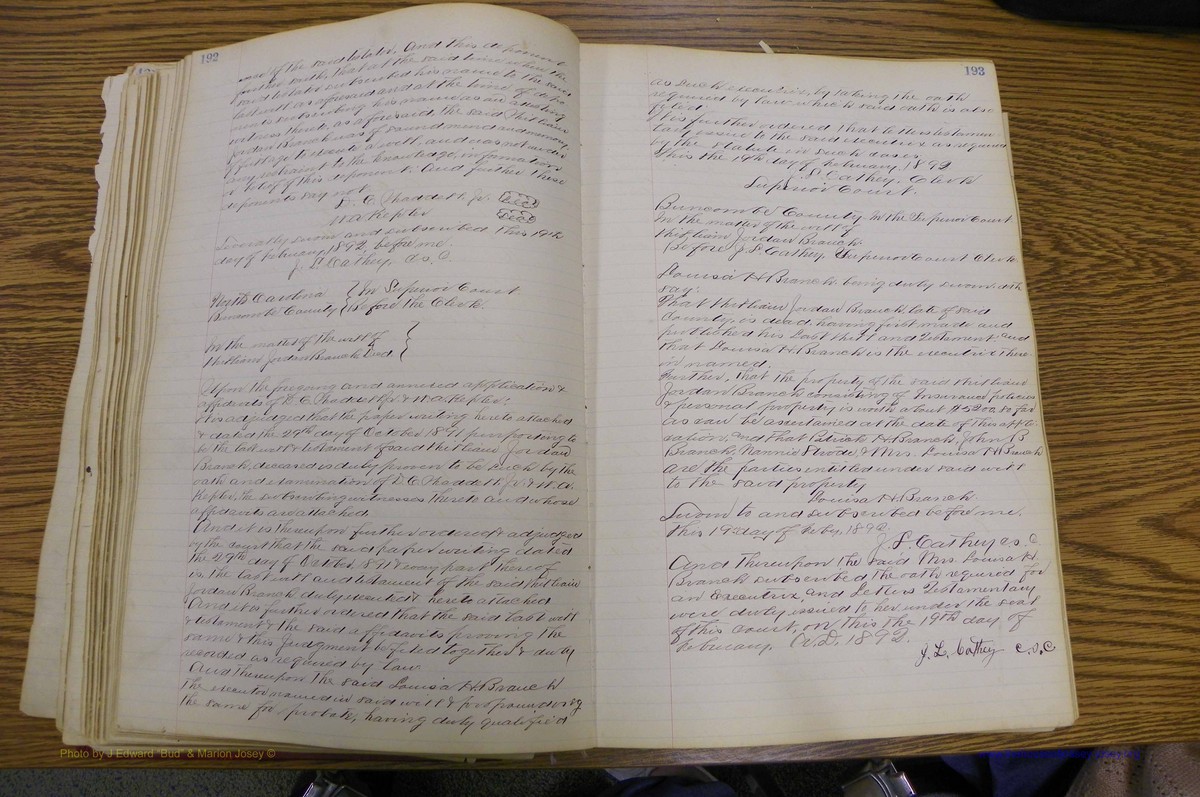 192
of the said testator. And this deponent
further saith, that at the said time when the
said testator subscribed his name to the said
last will as aforesaid and at the time of depo
nents subscribing his name as an attesting
witness thereto, as aforesaid, the said William
Jordan Branch was of sound mind and memory,
of full age to execute a will, and was not under
any restraint to the knowledge, information
& belief of this deponent. And further these
deponents say not.
E. C. Chaddett Jr. Seal
W. A. Kepler Seal
Severally sworn and subscribed this 19th
day of February 1892, before me.
J. L. Cathey, C.S.C.
North Carolina { In Superior Court
Buncombe County { Before the Clerk.
In the matter of the will of
William Jordan Branch Decd
Upon the foregoing and annexed application &
affidavits of E. C. Chaddett Jr. & W. A. Kepler:
It is adjudged that the paper writing hereto attached
& dated the 29th day of October 1891 purporting to
be the last will & testament of said William Jordan
Branch, deceased is duly proven to be such by the
oath and examination of E. C. Chaddett Jr. & W. A.
Kepler, the subscribing witnesses thereto and whose
affidavits are attached.
And it is thereupon further ordered & adjudged
by the court that the said paper writing dated
the 29th day of October 1891 & every part thereof
is the last will and testament of the said William
Jordan Branch duly executed & hereto attached
And it is further ordered that the said last will
& testament & the said affidavits proving the
same & this Judgment be filed together & duly
recorded as required by law
And thereupon the said Louisa H. Branch
the executor named in said will & propounding
the same for probate, having duly qualified
193
as such executrix, by taking the oath
required by law which said oath is also
filed:
It is further ordered that letters testamen
tary issue to the said executrix as required
by the statute in such cases.
This the 19th day of February, 1892
J. L. Cathey, Clerk
Superior Court.
Buncombe County. In the Superior Court
In the matter of the will of
William Jordan Branch.
Before J. L. Cathey Superior Court Clerk
Louisa H. Branch being duly sworn doth
say:
That William Jordan Branch late of said
County, is dead, having first made and
published his Last Will and Testament: and
that Louisa H. Branch is the executrix there-
in named.
Further, that the property of the said William
Jordan Branch consisting of Insurance policies
& personal property is worth about $5200. so far
as can be ascertained at the date of this appli-
cation, and that Patrick H. Branch, John B
Branch, Nannie Rhode, & Mrs. Louisa H Branch
are the parties entitled under said will
to the said property
Louisa H. Branch.
Sworn to and subscribed before me,
this 19 day of Feby, 1892.
J. L. Cathey C.S.C.
And thereupon the said Mrs. Louisa H.
Branch subscribed the oath required for
an executrix, and Letters Testamentary
were duly issued to her under the seal
of this court, on this the 19th day of
February. A.D. 1892.
J. L. Cathey C.S.C
Photo by J Edward "Bud" & Marion Josey ©